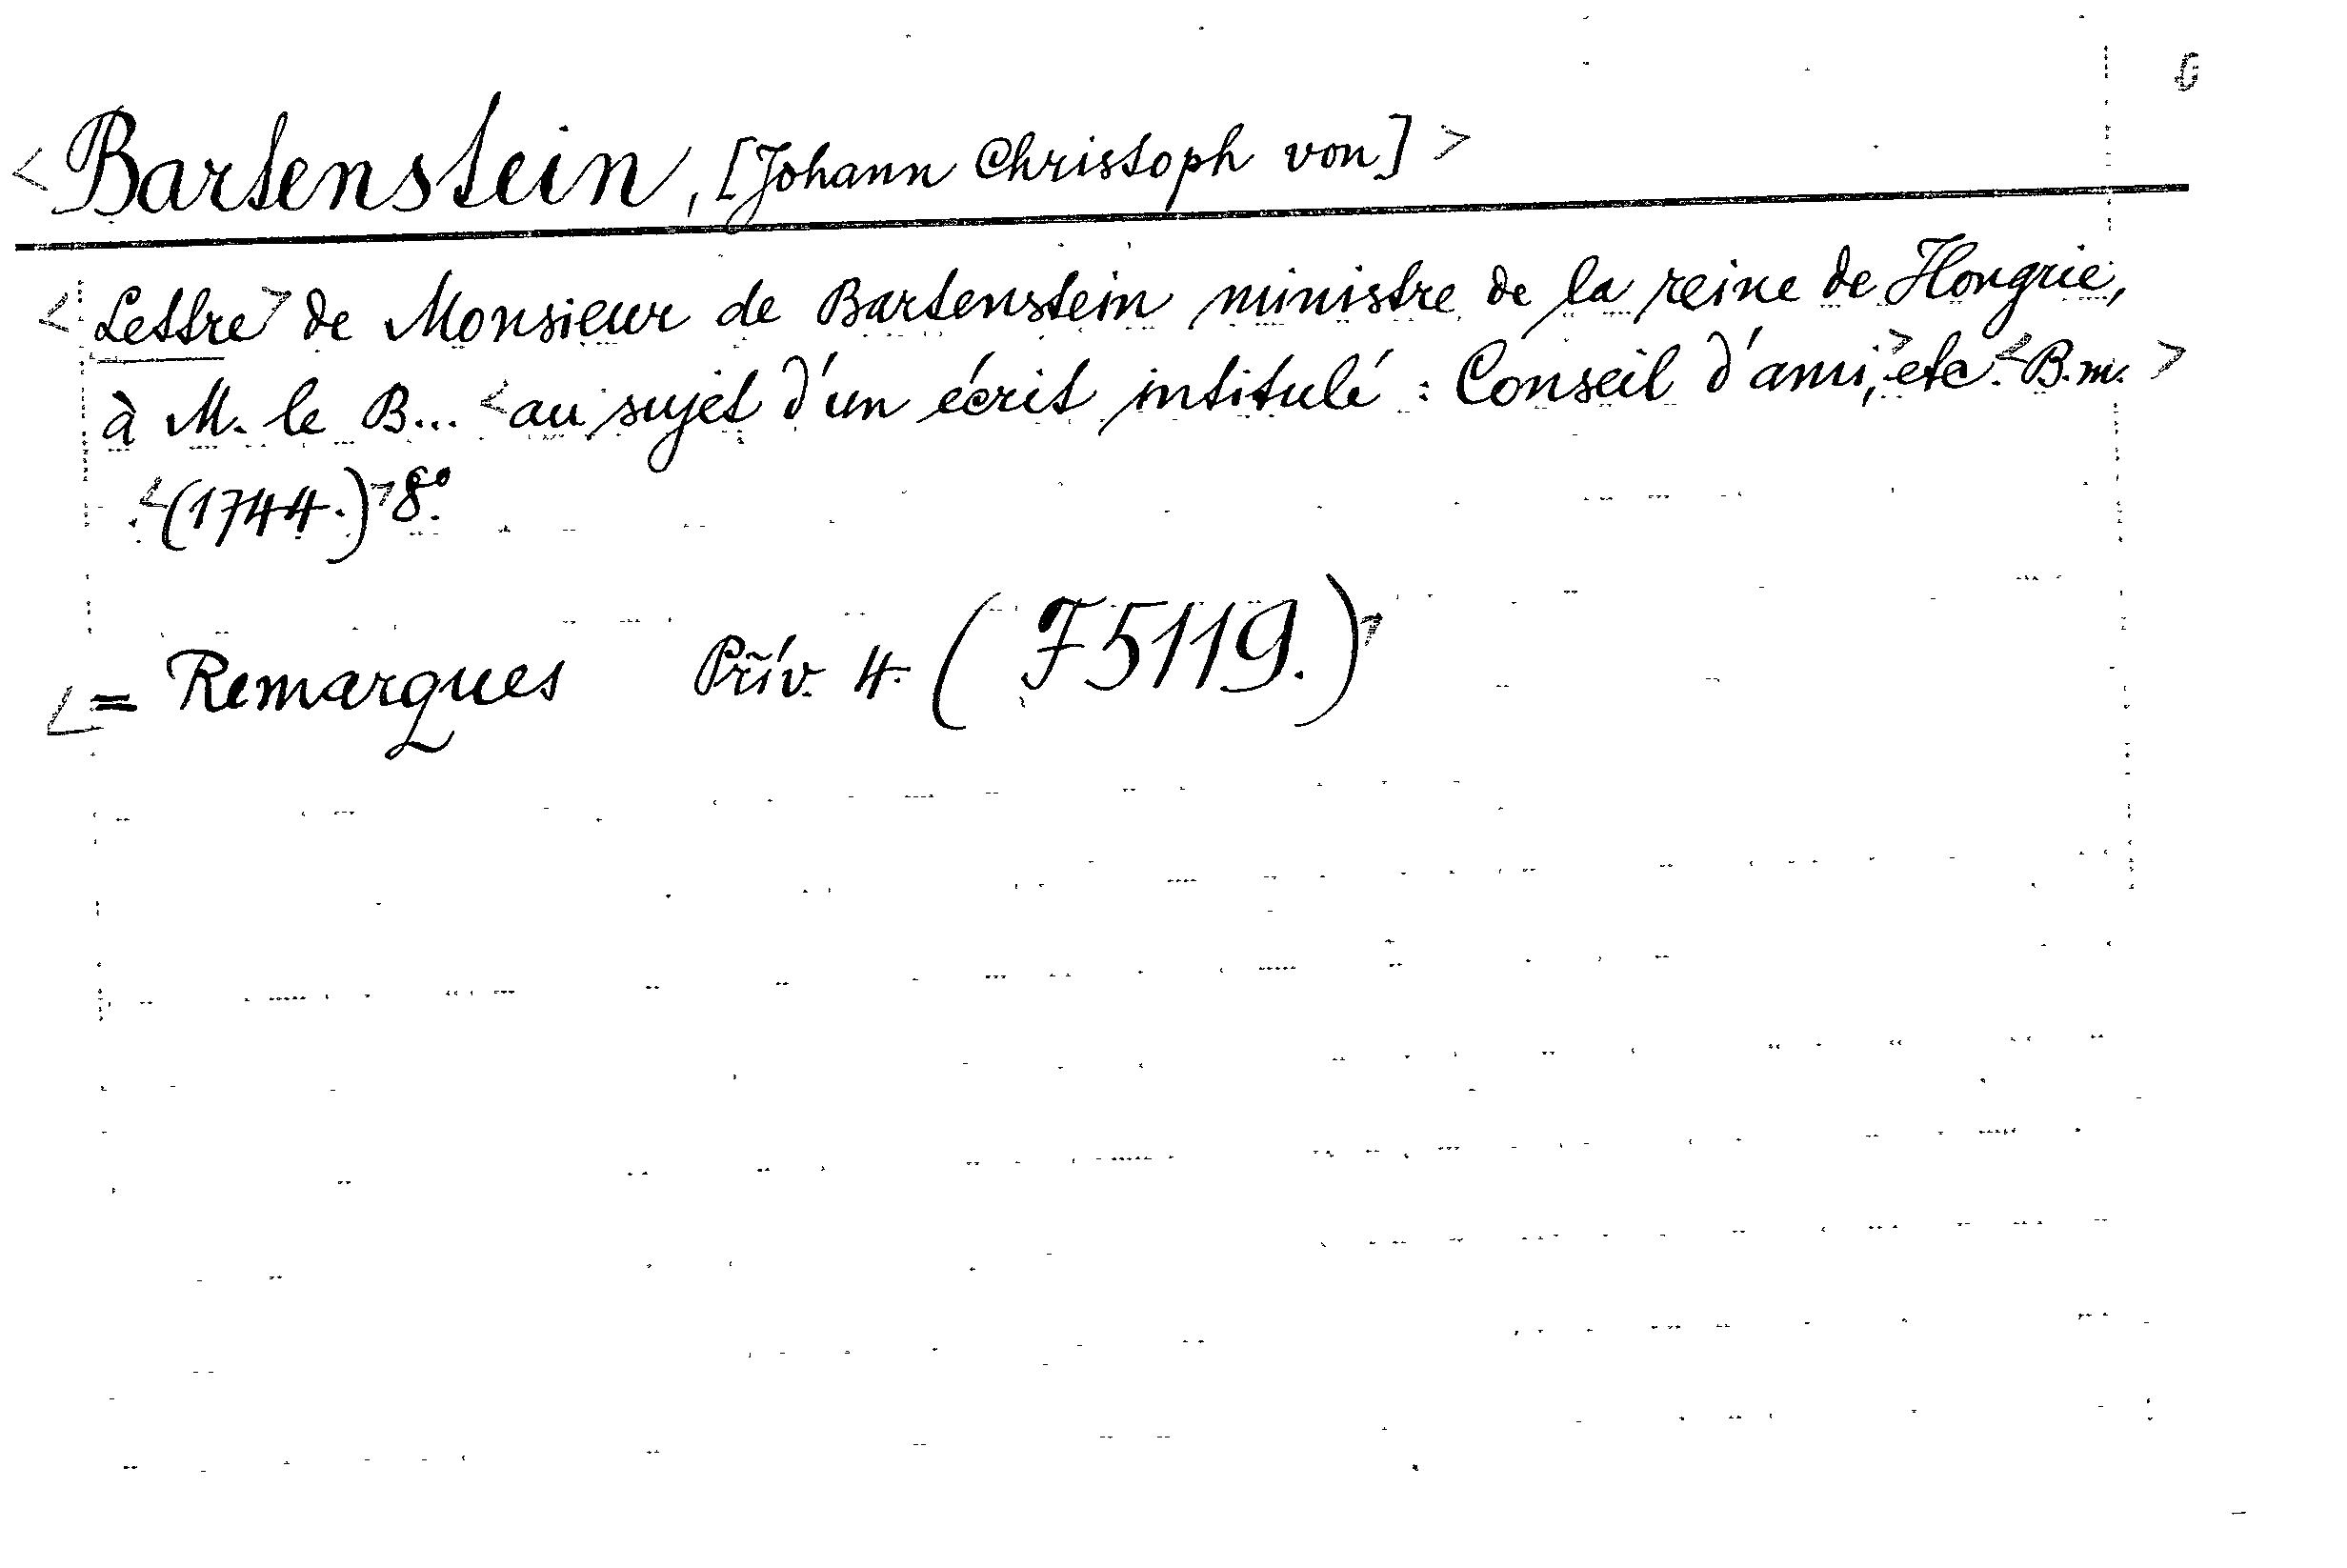 <Bartenstein, [Johann Christoph von]>
<Lettre> de Monsieur de Bartenstein ministre de la reine de Hongrie,
à M. le B... <au sujet d'un écrit intitulé: Conseil d'ami,> etc. <B.m.>
<(1744.)> 8º.
<= Remarques Priv. 4. (F5119.)>